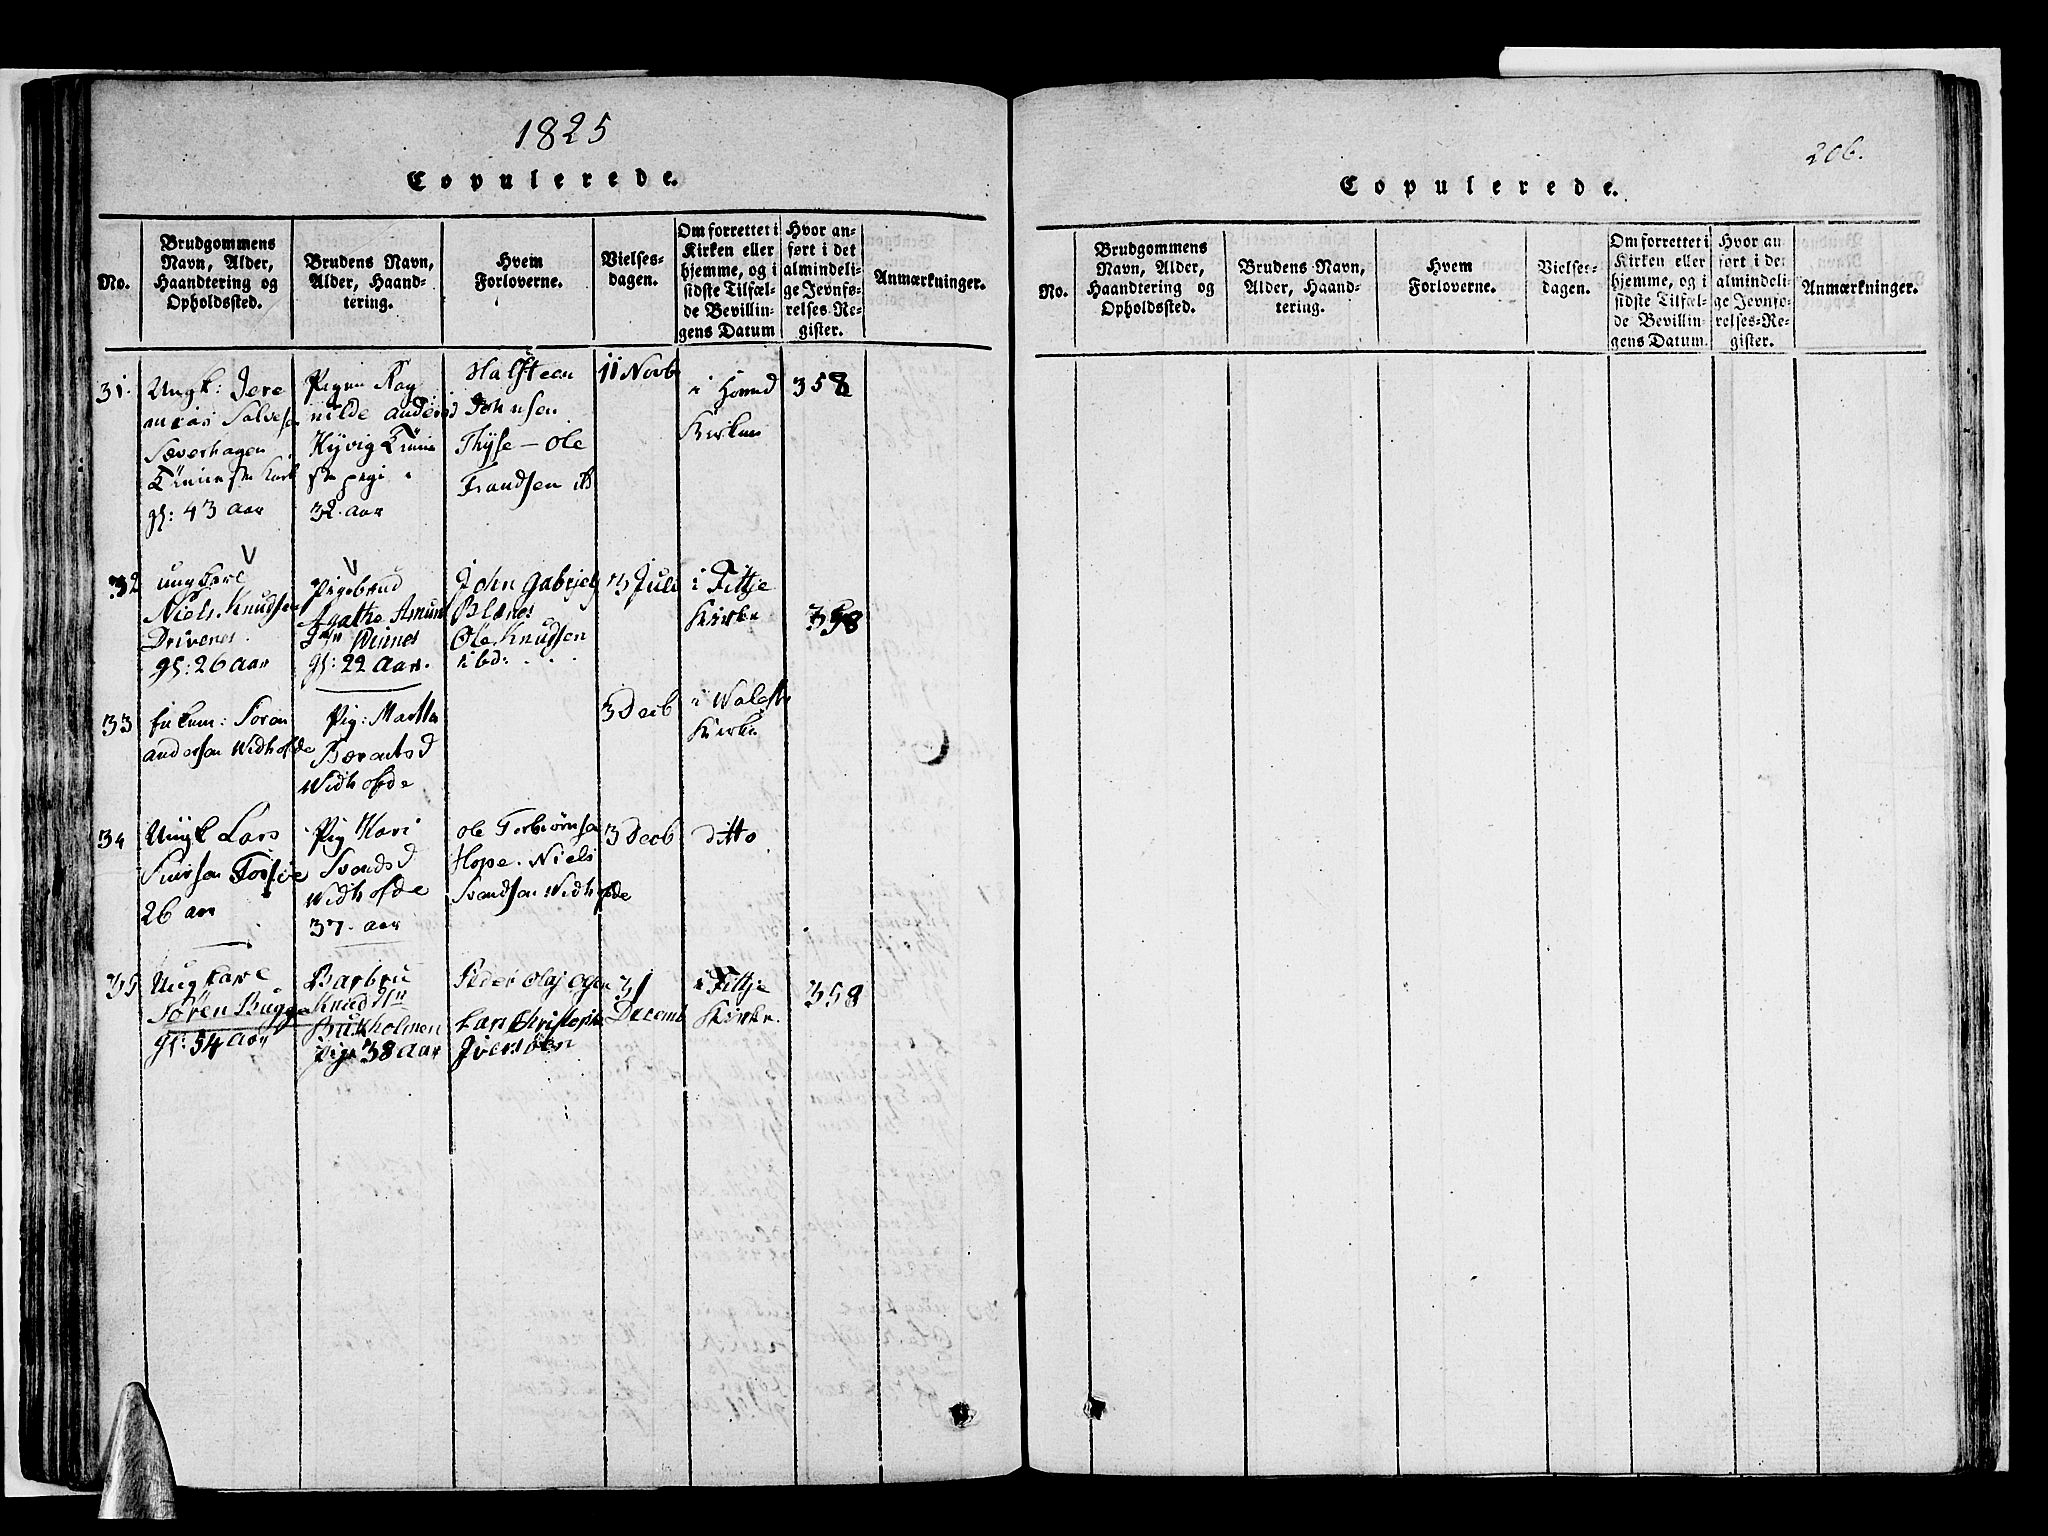 1825
Copulerede.
No.
Brudgommens
Navn, Alder,
Haandtering og
Opholdssted.
Brudens Navn,
Alder, Haand-
tering.
Hvem
Forloverne.
Vielses-
dagen.
Om forrettet i
Kirken eller
hjemme, og i
sidste Tilfæl-
de Bevillin-
gens Datum
Hvor an-
ført i det
almindeli-
ge Jevnfø-
relses-Re-
gister.
Anmærkninger.
31.
Ungk: Jere
mias Salvesen
gl: 43 Aar
Nilde Anders D
32 aar
Halfteen
Johnsen
Thÿse - Ole
Frandsen
11 Novb
i
Kirken
358
32
ungkarl
Niels Knudsen
Drivenes
gl: 26 Aar
Pigebrud
Agathe Amund
gl: 22 Aar.
John Gabriels
Blenes
Ole Knudsen
ibd:
13 Juli
i Fittje
Kirke
358
33
Enkem: Søren
Andersen Widhofde
Pig: Martha
Berentsd
Widhofde
3 Decb
i
Kirke
34
Ungk Lars
26 aar
Pig Kari
Svendsd
Widhofde
37 aar
Ole Torbiørnsen
Hope. Niels
Svendsen Widhofde
3 Decb
ditto
35
Ungkarl
Søren Bugge
gl: 54 Aar
Barbru
Knudsdtr
Bukholmen
Pige 38 Aar
Peder Olaj Ogen
Lars Christopher
31
Decemb
i Fittje
Kirke.
358
206.
Copulerede.
No.
Brudgommens
Navn, Alder,
Haandtering og
Opholdssted.
Brudens Navn,
Alder, Haand-
tering.
Hvem
Forloverne.
Vielses-
dagen.
Om forrettet i
Kirken eller
hjemme, og i
sidste Tilfæl-
de Bevillin-
gens Datum
Hvor an-
ført i det
almindeli-
ge Jevnfø-
relses-Re-
gister.
Anmærkninger.